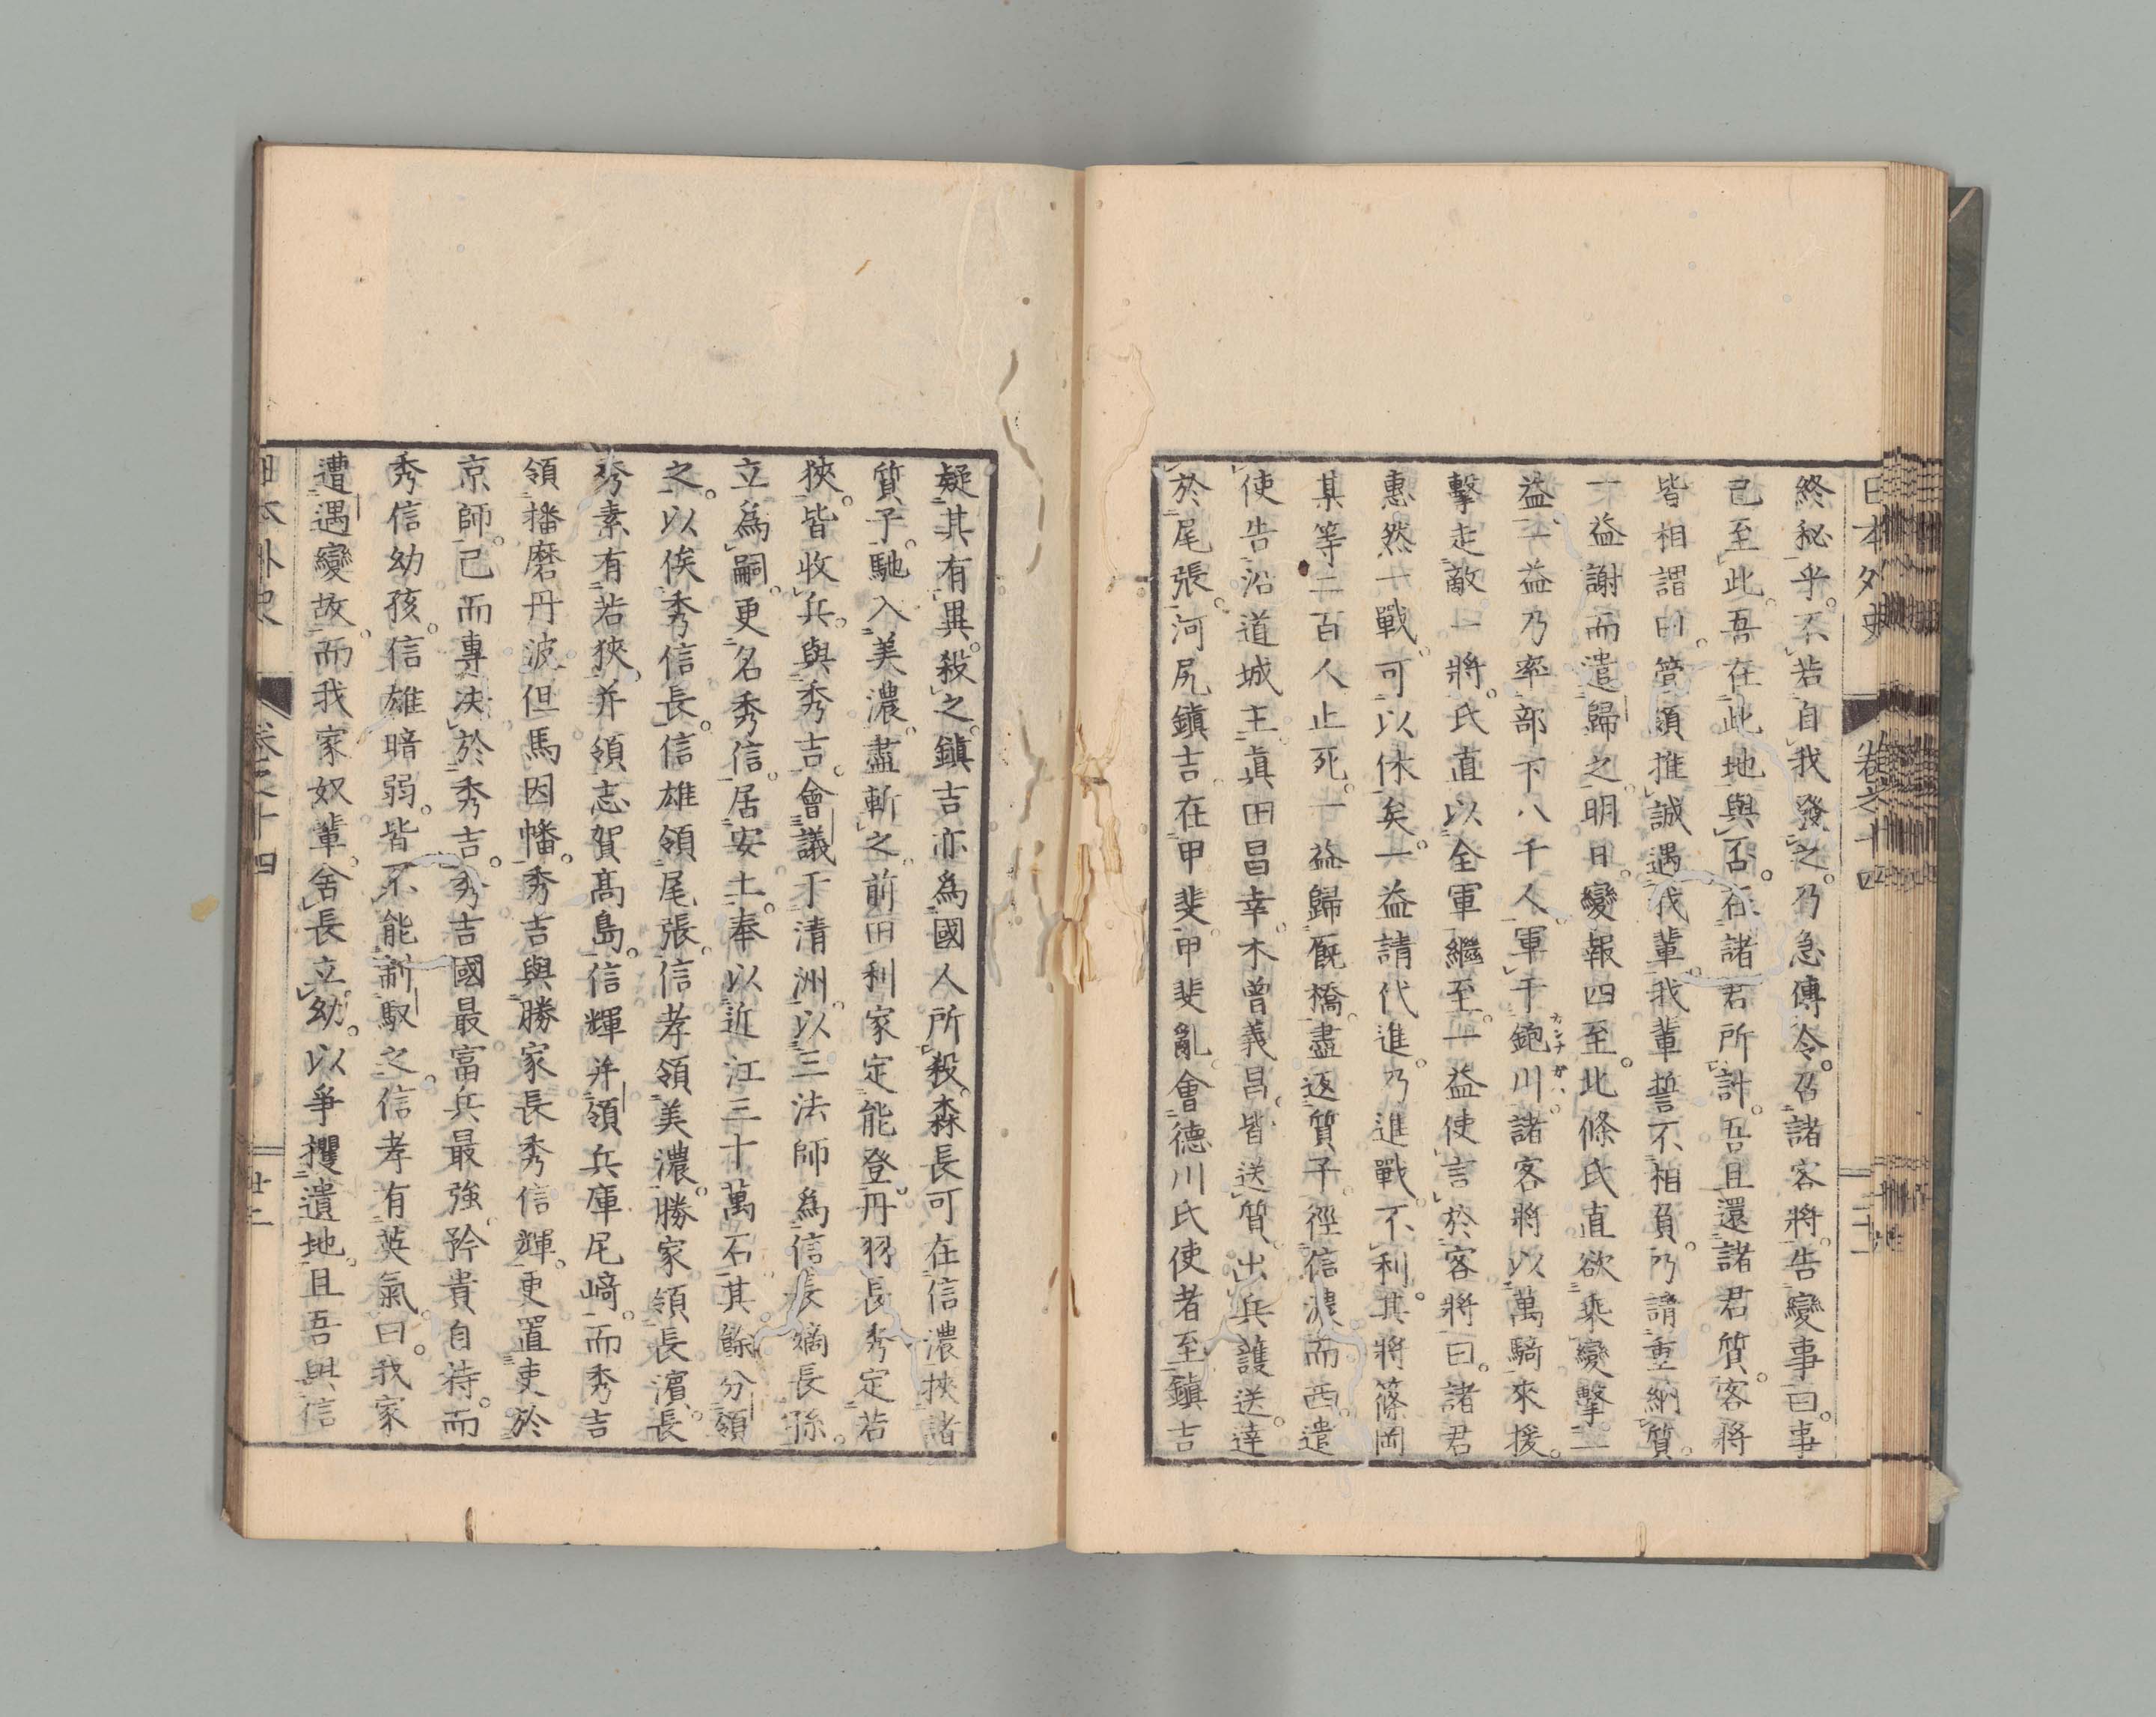 日本外史 卷之十四
終秘乎。不若自我發之。乃急傳令。召諸客將。告變事曰。事
已至此。吾在此地。與否。在諸君所計。吾且還諸君質。客將
皆相謂曰。管領推誠遇我輩。我輩誓不相負。乃請重納質。
一益謝而遣歸之。明日。變報四至。北條氏直欲乘變擊一
益。一益乃率部下八千人。軍于鉋川。諸客將以萬騎來援。
カンナガハ
擊走敵二將。氏直以全軍繼至。一益使言於客將曰。諸君
惠然一戰。可以休矣。一益請代進。乃進戰。不利。其將篠岡
某等二百人止死。一益歸廐橋。盡返質子。徑信濃而西。遣
使告沿道城主。眞田昌幸。木曾義昌。皆送質。出兵護送。達
於尾張。河尻鎭吉。在甲斐。甲斐亂。會德川氏使者至。鎭吉
疑其有異。殺之。鎭吉亦爲國人所殺。森長可在信濃。挾諸
質子。馳入美濃。盡斬之。前田利家定能登。丹羽長秀定若
狹。皆收兵。與秀吉。會議于清洲。以三法師爲信長嫡長孫。
立爲嗣。更名秀信。居安土。奉以近江三十萬石。其餘分領
之。以俟秀信長。信雄領尾張。信孝領美濃。勝家領長濱。長
秀素有若狹。并領志賀髙島。信輝并領兵庫尼﨑。而秀吉
領播磨丹波但馬因幡。秀吉與勝家長秀信輝。更置吏於
京師。己而專决於秀吉。秀吉國最富兵最強。矜貴自待。而
秀信幼孩。信雄暗弱。皆不能制馭之。信孝有英氣。曰。我家
遭遇變故。而我家奴輩。舍長立幼。以爭攫遺地。且吾與信
日本外史 卷之十四 廿二